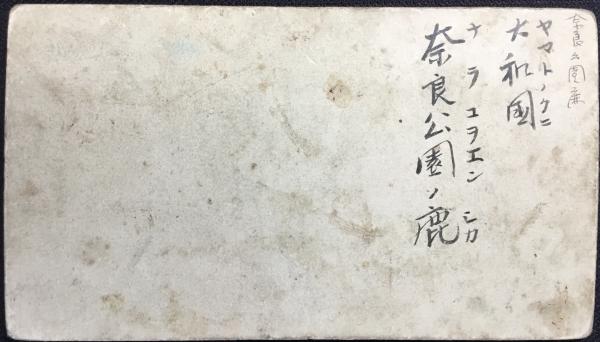 奈良公園鹿
ヤマトノクニ
大和國
ナラコヲエン シカ
奈良公園ノ鹿